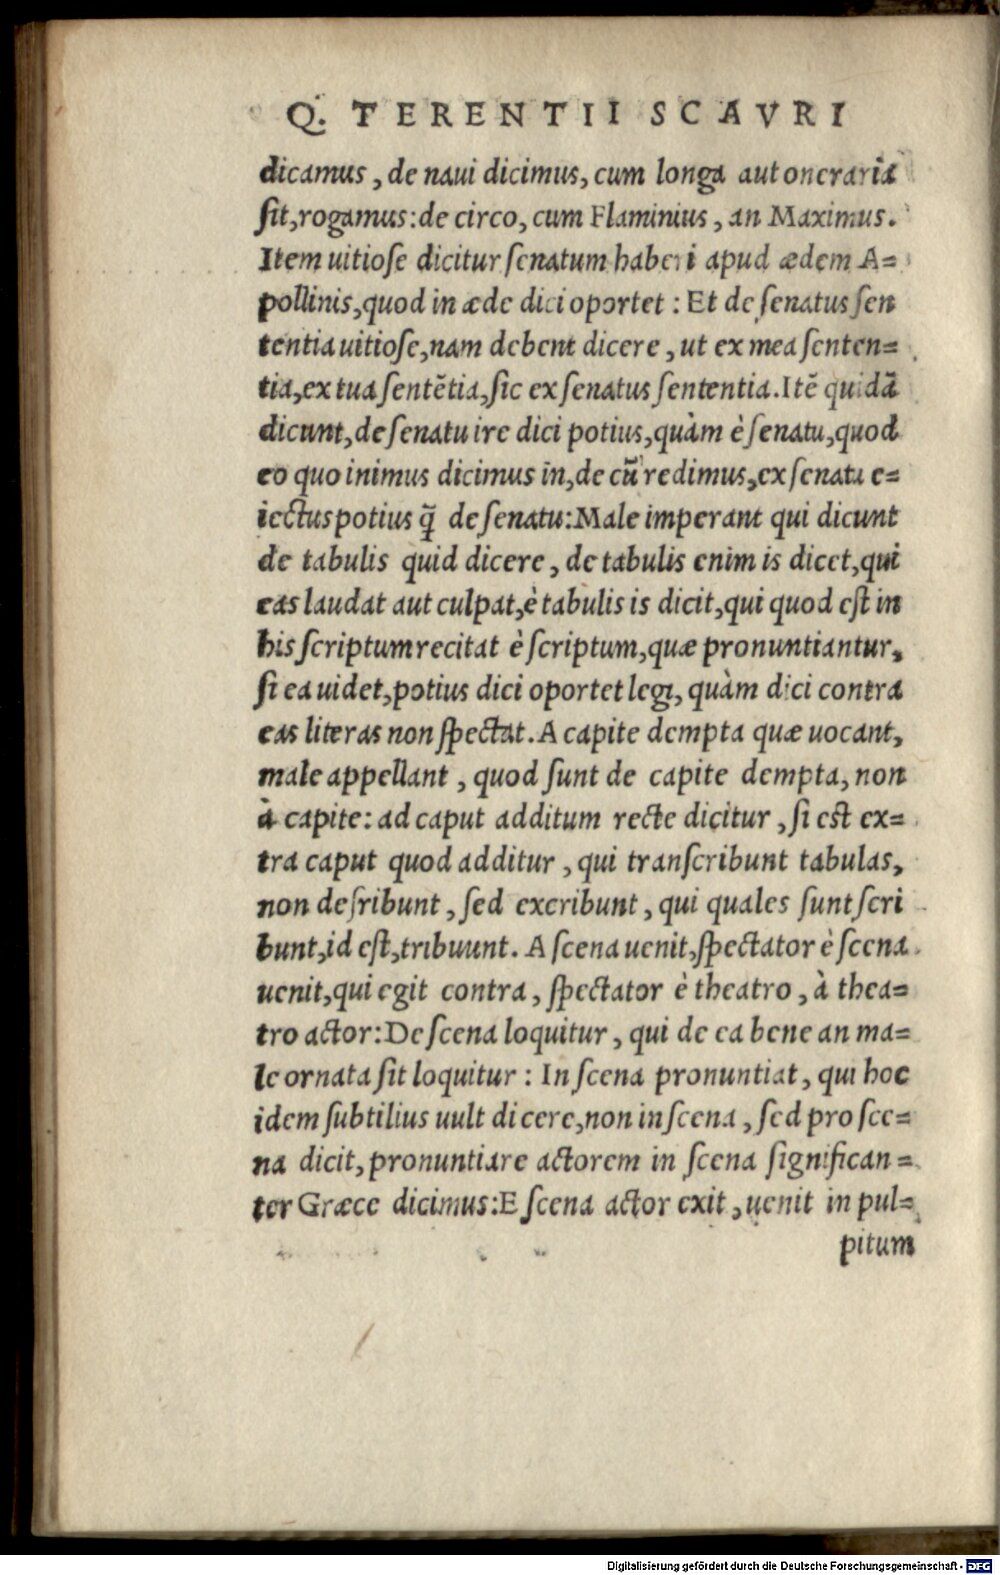 Q. TERENTII SCAVRI
dicamus, de naui dicimus, cum longa aut oneraria
ſit, rogamus: de circo, cum Flaminius, an Maximus.
Item uitioſe dicitur ſenatum haberi apud ædem A=
pollinis, quod in æde dici oportet: Et de ſenatus ſen
tentia uitioſe, nam debent dicere, ut ex mea ſenten=
tia, ex tua ſentẽtia, ſic ex ſenatus ſententia. Itẽ quidã
dicunt, de ſenatu ire dici potius, quàm è ſenatu, quod
eo quo inimus dicimus in, de cũ redimus, ex ſenatu e=
iectus potius q̃ de ſenatu: Male imperant qui dicunt
de tabulis quid dicere, de tabulis enim is dicet, qui
eas laudat aut culpat, è tabulis is dicit, qui quod eſt in
his ſcriptum recitat è ſcriptum, quæ pronuntiantur,
ſi ea uidet, potius dici oportet legi, quàm dici contra
eas literas non ſpectat. A capite dempta quæ uocant,
male appellant, quod ſunt de capite dempta, non
à capite: ad caput additum recte dicitur, ſi eſt ex=
tra caput quod additur, qui tranſcribunt tabulas,
non deſribunt, ſed excribunt, qui quales ſunt ſcri
bunt, id eſt, tribuunt. A ſcena uenit, ſpectator è ſcena
uenit, qui egit contra, ſpectator è theatro, à thea=
tro actor: De ſcena loquitur, qui de ea bene an ma=
le ornata ſit loquitur: In ſcena pronuntiat, qui hoc
idem ſubtilius uult dicere, non in ſcena, ſed pro ſce=
na dicit, pronuntiare actorem in ſcena ſignifican=
ter Græce dicimus: E ſcena actor exit, uenit in pul=
pitum
Digitalisierung gefördert durch die Deutsche Forschungsgemeinschaft - DFG